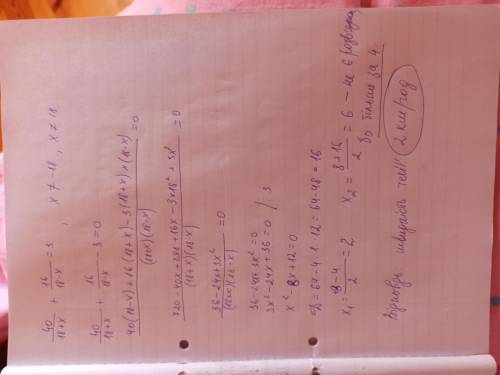 40/(18+x) + 16/(18-x) = 3 , x ≠ -18, x ≠ 18
40/(18+x) + 16/(18-x) - 3 = 0
(40(18-x) + 16(18+x) - 3(18+x)×(18-x))/((18+x)(18-x)) = 0
(720-40x + 288 + 16x - 3×18² + 3x²)/((18+x)(18-x)) = 0
(36-24x+3x²)/((18+x)(18-x)) = 0
36-24x+3x² = 0
3x²-24x+36 = 0 / 3
x²-8x+12=0
D=64-4·1·12=64-48=16
x₁ = (8-4)/2 = 2 x₂ = (8+16)/2 = 6 - не є розв'язком
бо більше за 4
Відповідь: швидкість течії 2 км/год